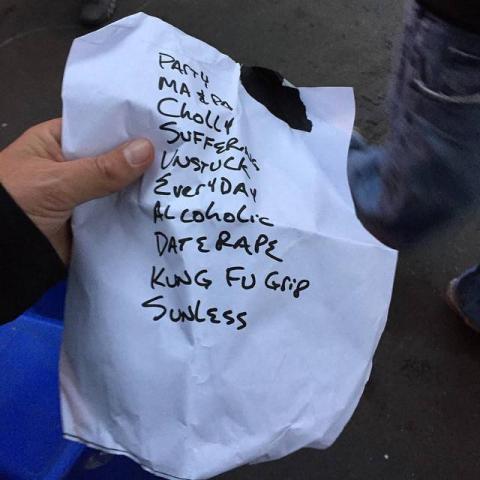 PARTY
MA & PA
Cholly
SUFFERING
UNSTUCK
EVERYDAY
ALCOHOLIC
DATE RAPE
KUNG FU GRIP
SUNLESS